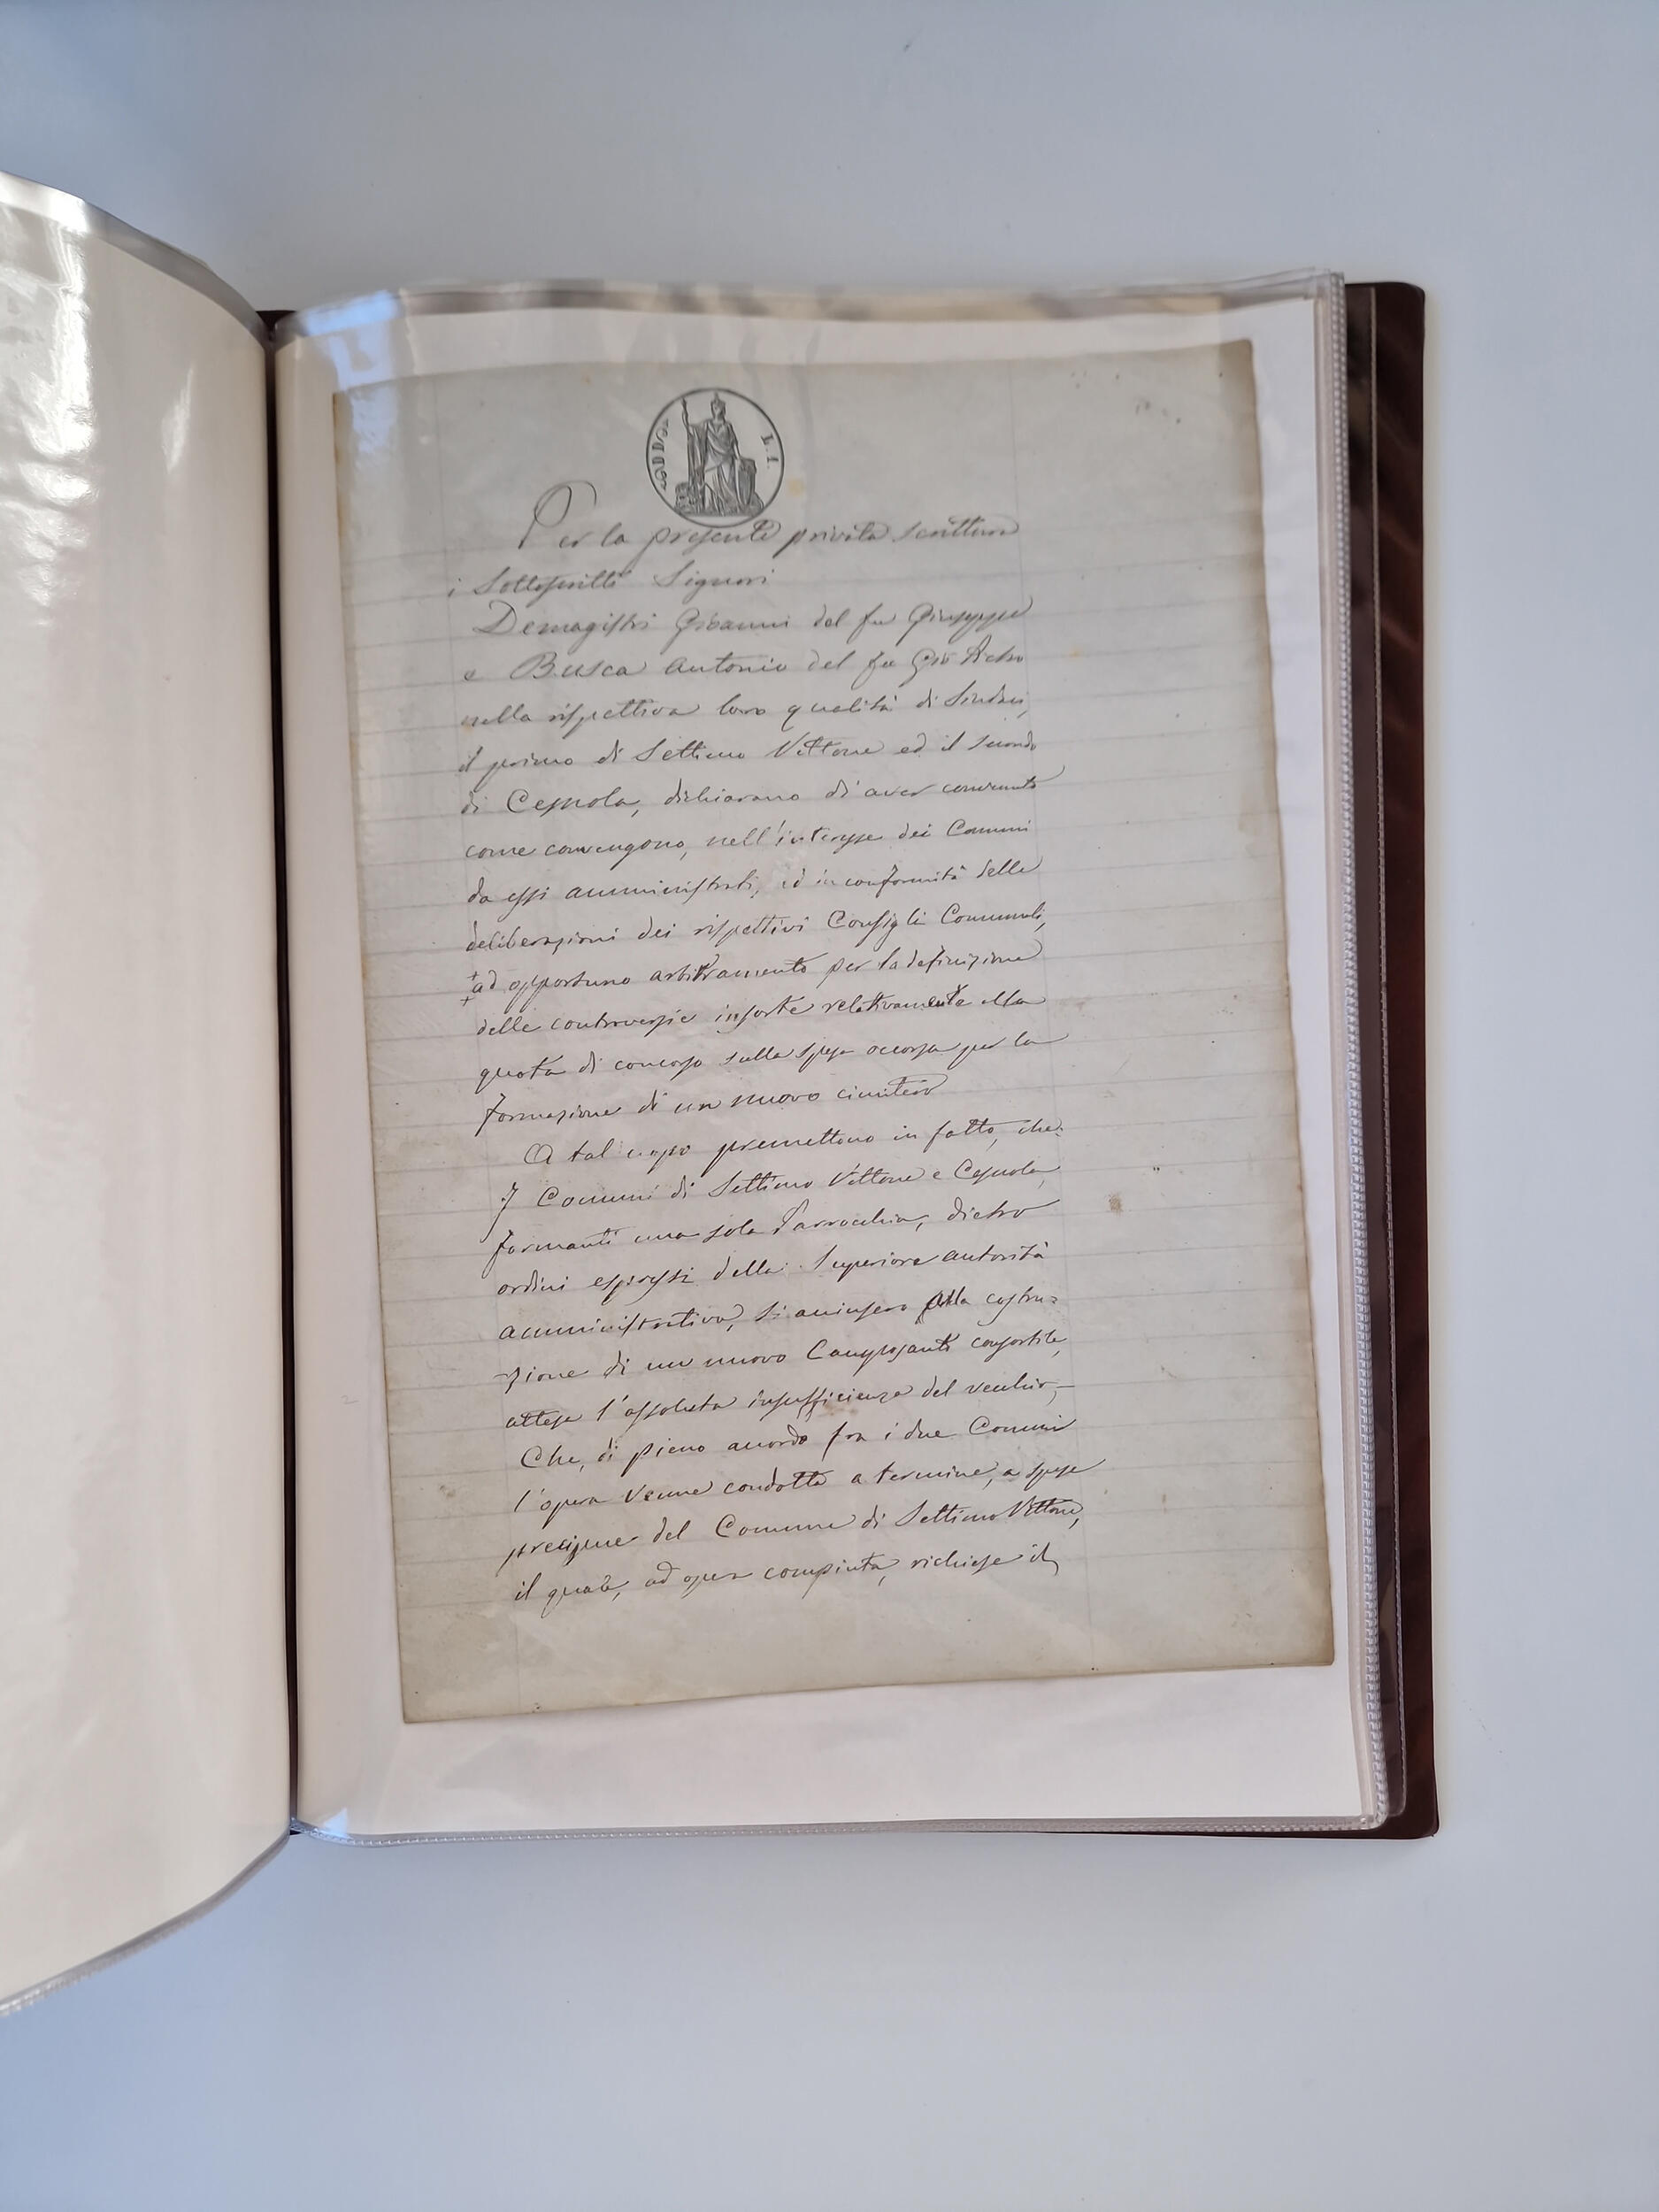 L. 1.
Per la presente privata scrittura
i sottoscritti Signori
Demagistri Giovanni del fu Giuseppe
e Busca Antonio del fu Gio Pietro
nella rispettiva loro qualità di Sindaci,
il primo di Settimo Vittone ed il secondo
di Cesnola, dichiarano di aver convenuto
come convengono, nell'interesse dei Comuni
da essi amministrati, ed in conformità delle
deliberazioni dei rispettivi Consigli Communali,
ad opportuno arbitramento per la definizione
delle controversie insorte relativamente alla
quota di concorso sulla spesa occorsa per la
formazione di un nuovo cimitero
A tal uopo premettono in fatto, che:
I Comuni di Settimo Vittone e Cesnola,
formanti una sola Parrocchia, dietro
ordini espressi della Superiore autorità
amministrativa, si accinsero alla costru=
zione di un nuovo Camposanto consortile,
attesa l'assoluta insufficienza del vecchio, –
Che, di pieno accordo fra i due Comuni
l'opera venne condotta a termine, a spese
precipue del Comune di Settimo Vittone,
il quale, ad opera compiuta, richiese il